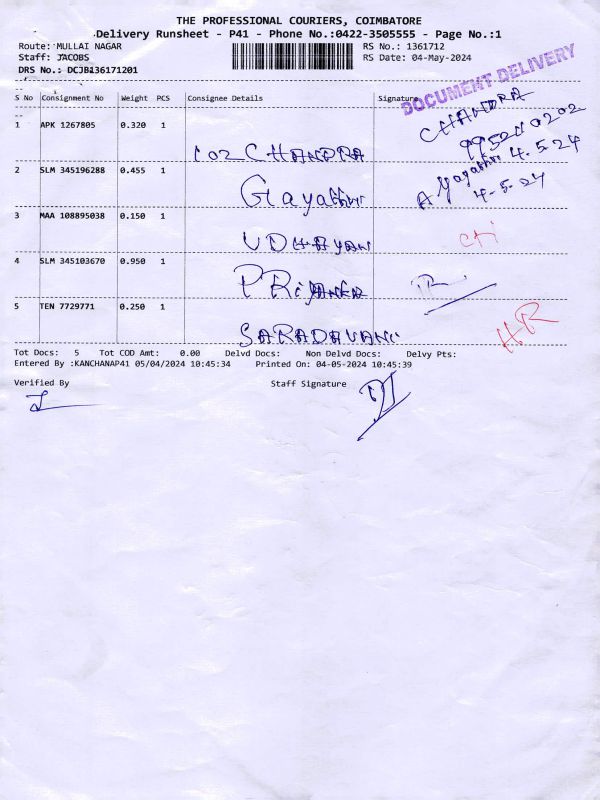 THE PROFESSIONAL COURIERS, COIMBATORE
Delivery Runsheet - P41 - Phone No.:0422-3505555 - Page No.:1
Route: MULLAI NAGAR RS No.: 1361712
Staff: JACOBS RS Date: 04-May-2024
DRS No.: DCJB136171201
DOCUMENT DELIVERY
S No Consignment No Weight PCS Consignee Details Signature
1 APK 1267805 0.320 1 102 CHANDRA CHANDRA
4.5.24
2 SLM 345196288 0.455 1 Gayathri 4.5.24
3 MAA 108895038 0.150 1 UDHAYAN
4 SLM 345103670 0.950 1 PRiyanka
5 TEN 7729771 0.250 1 SARADAVANI HR
Tot Docs: 5 Tot COD Amt: 0.00 Delvd Docs: Non Delvd Docs: Delvy Pts:
Entered By :KANCHANAP41 05/04/2024 10:45:34 Printed On: 04-05-2024 10:45:39
Verified By Staff Signature